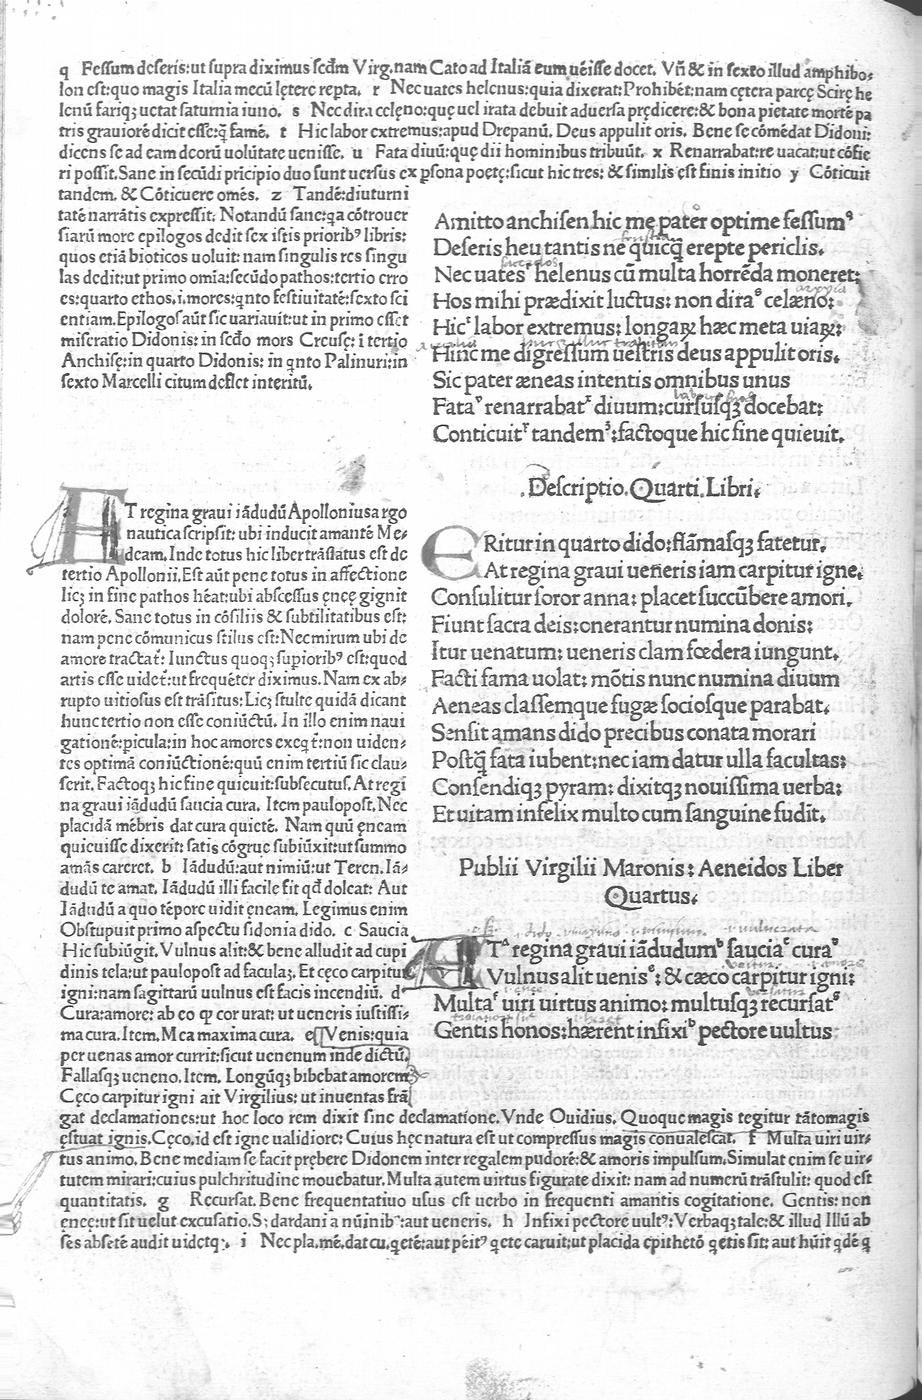 q Fessum deseris: ut supra diximus secdm Virg. nam Cato ad Italiā eum uēisse docet. Vñ & in sexto illud amphibo⸗
lon est: quo magis Italia mecū lętere repta. r Nec uates helenus: quia dixerat: Prohibēt: nam cętera parcę Scirę he
lenū fariq; uetat saturnia iuno. s Nec dira celęno: quę uel irata debuit aduersa prędicere: & bona pietate mortē pa
tris grauiorē dicit esse: q̄ famē. t Hic labor extremus: apud Drepanū. Deus appulit oris. Bene se cōmēdat Didoni:
dicens se ad eam deorū uolūtate uenisse. u Fata diuū: quę dii hominibus tribuūt. x Renarrabat: re uacat: ut cōfic
ri possit. Sane in secūdi pricipio duo sunt uersus ex psona poetę: sicut hic tres: & similis est finis initio y Cōticuit
tandem. & Cōticuere omēs. z Tandē: diuturni
tatē narrātis expressit. Notandū sane: qa cōtrouer
siarū more epilogos dedit sex istis prioribꝰ libris:
quos etiā bioticos uoluit: nam singulis res singu
las dedit: ut primo omia: secūdo pathos: tertio erro
es: quarto ethos. i. mores: qnto festiuitatē: sexto sci
entiam. Epilogos aūt sic uariauit: ut in primo esset
miseratio Didonis: in secdo mors Creusę: i tertio
Anchisę: in quarto Didonis: in qnto Palinuri: in
sexto Marcelli citum deflet interitū.
Amitto anchisen hic me pater optime fessum
Deseris heu tantis ne quicq̄ erepte periclis.
Nec uates helenus cū multa horrēda moneret:
Hos mihi prædixit luctus: non dira celæno:
Hic labor extremus: longaꝝ hæc meta uiaꝝ:
Hinc me digressum uestris deus appulit oris.
Sic pater æneas intentis omnibus unus
Fata renarrabat diuum: cursusq; docebat:
Conticuit tandem: factoque hic fine quieuit.
Descriptio. Quarti. Libri.
ERitur in quarto dido: flāmasq; fatetur.
At regina graui ueneris iam carpitur igne.
Consulitur soror anna: placet succūbere amori.
Fiunt sacra deis: onerantur numina donis:
Itur uenatum: ueneris clam fœdera iungunt.
Facti fama uolat: mōtis nunc numina diuum
Aeneas classemque fugæ sociosque parabat.
Sensit amans dido precibus conata morari
Postq̄ fata iubent: nec iam datur ulla facultas:
Consendiq; pyram: dixitq; nouissima uerba:
Et uitam infelix multo cum sanguine fudit.
Publii Virgilii Maronis: Aeneidos Liber
Quartus.
AT regina graui iādudum saucia cura
Vulnus alit uenis: & cæco carpitur igni:
Multa uiri uirtus animo: multusq; recursat
Gentis honos: hærent infixi pectore uultus
AT regina graui iādudū Apollonius argo
nautica scripsit: ubi inducit amantē Me⸗
deam. Inde totus hic liber trāslatus est de
tertio Apollonii. Est aūt pene totus in affectione
lic; in fine pathos hēat: ubi abscessus ęnęę gignit
dolorē. Sane totus in cōsiliis & subtilitatibus est:
nam pene cōmunicus stilus est: Nec mirum ubi de
amore tractat: Iunctus quoq; supioribꝰ est: quod
artis esse uidet: ut frequēter diximus. Nam ex ab⸗
rupto uitiosus est trāsitus: Lic; stulte quidā dicant
hunc tertio non esse coniūctū. In illo enim naui
gationē: picula: in hoc amores exeqt: non uiden⸗
tes optimā coniūctionē: quū enim tertiū sic clau⸗
serit. Factoq; hic fine quieuit: subsecutus. At regi
na graui iādudū saucia cura. Item paulopost. Nec
placidā mēbris dat cura quietē. Nam quū ęneam
quieuisse dixerit: satis cōgrue subiūxit: ut summo
amās careret. b Iādudū: aut nimiū: ut Teren. Iā⸗
dudū te amat. Iādudū illi facile fit qd doleat: Aut
Iādudū a quo tēpore uidit ęneam. Legimus enim
Obstupuit primo aspectu sidonia dido. c Saucia
Hic subiūgit. Vulnus alit: & bene alludit ad cupi
dinis tela: ut paulopost ad facula;. Et cęco carpitur
igni: nam sagittarū uulnus est facis incendiū. d
Cura: amore: ab eo ꝙ cor urat: ut ueneris iustissi⸗
ma cura. Item. Mea maxima cura. e Venis: quia
per uenas amor currit: sicut uenenum inde dictū.
Fallasq; ueneno. Item. Longūq; bibebat amorem
Cęco carpitur igni ait Virgilius: ut inuentas frā
gat declamationes: ut hoc loco rem dixit sine declamatione. Vnde Ouidius. Quoque magis tegitur tātomagis
ęstuat ignis. Cęco. id est igne ualidiore: Cuius hęc natura est ut compressus magis conualescat. f Multa uiri uir⸗
tus animo. Bene mediam se facit prębere Didonem inter regalem pudorē: & amoris impulsum. Simulat enim se uir⸗
tutem mirari: cuius pulchritudine mouebatur. Multa autem uirtus figurate dixit: nam ad numerū trāstulit: quod est
quantitatis. g Recursat. Bene frequentatiuo usus est uerbo in frequenti amantis cogitatione. Gentis: non
ęnęę: ut sit uelut excusatio. S; dardani a nūinibꝰ: aut ueneris. h Infixi pectore uultꝰ: Verbaq; tale: & illud Illū ab
ses absētē audit uidetq;. i Nec pla. mē. dat cu. qetē: aut pēitꝰ qete caruit: ut placida epithetō qetis sit: aut hūit qdē q